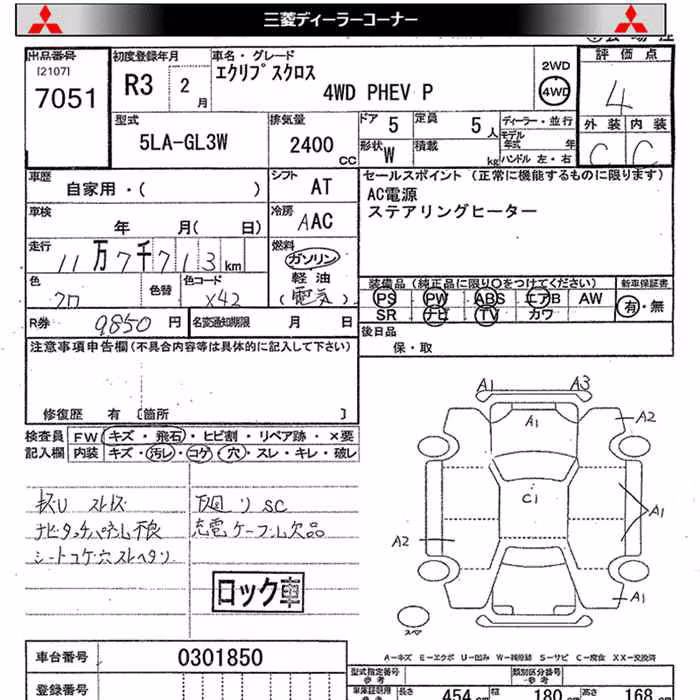 三菱ディーラーコーナー
出品番号
[2107]
7051
初度登録年月
R3 2月
車名・グレード
エクリプスクロス
4WD PHEV P
2WD
4WD
評価点
4
外装 内装
C C
型式
5LA-GL3W
排気量
2400 CC
ドア 5
定員 5人
形状 W
積載 kg
ディーラー・並行
モデル年式 年
ハンドル 左・右
車歴
自家用・( )
シフト
AT
セールスポイント (正常に機能するものに限ります)
AC電源
ステアリングヒーター
車検
年 月( 日)
冷房
AAC
走行
11万7千713km
燃料
ガソリン
軽油
(電気)
色
クロ
色替
色コード
X42
装備品 (純正品に限り○をつけてください)
PS PW ABS エアB AW
SR ナビ TV カワ
新車保証書
有・無
R券
9850円
名変通知期限 月 日
後日品
保・取
注意事項申告欄 (不具合内容等は具体的に記入して下さい)
修復歴 有 [箇所 ]
検査員
記入欄
FW キズ・飛石・ヒビ割・リペア跡・×要
内装 キズ・汚レ・コゲ・穴・スレ・キレ・破レ
ナビタッチパネル不良
シートコゲ穴ストヘタリ
下廻りSC
充電ケーブル欠品
ロック車
A1 A3
A1 A2
C1
A1
A2
A1
スペア
A-キズ E-エクボ U-凹み W-補修跡 S-サビ C-腐食 XX-交換済
車台番号
0301850
登録番号
型式指定番号
参考
類別区分番号
参考
長さ 454 cm
幅 180 cm
高さ 168 cm